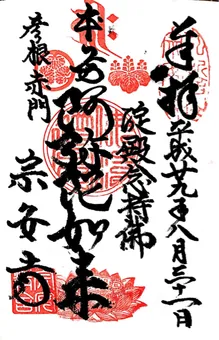 奉拝 平成廿九年八月三十一日
淀殿念持佛
本尊阿弥陀如来
彦根 赤門
宗安寺